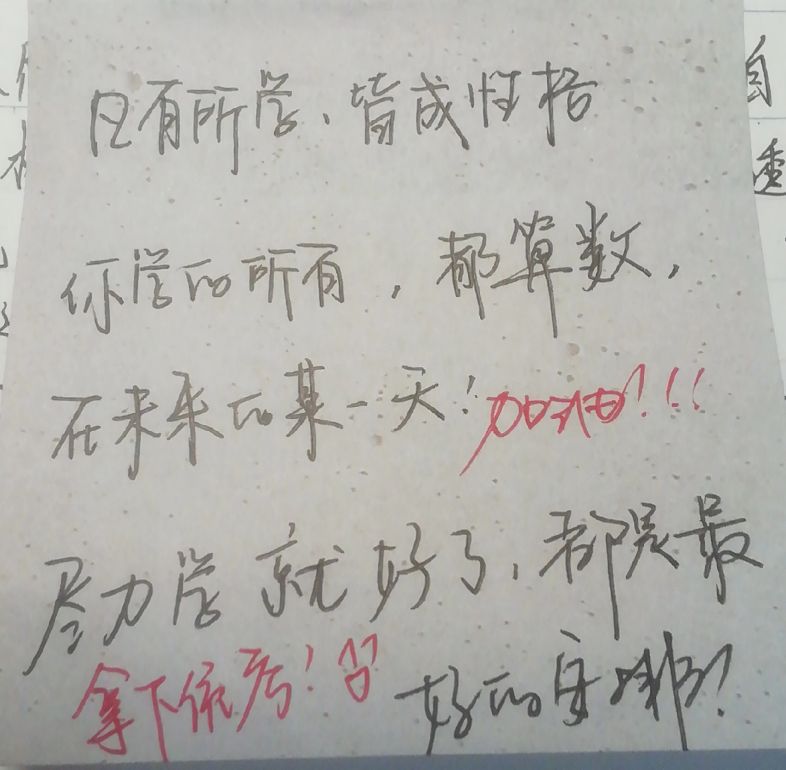 凡有所学、皆成性格
你学的所有，都算数，
在未来的某一天！加油！！！
尽力学就好了，都是最
好的安排！
拿下！
自
透